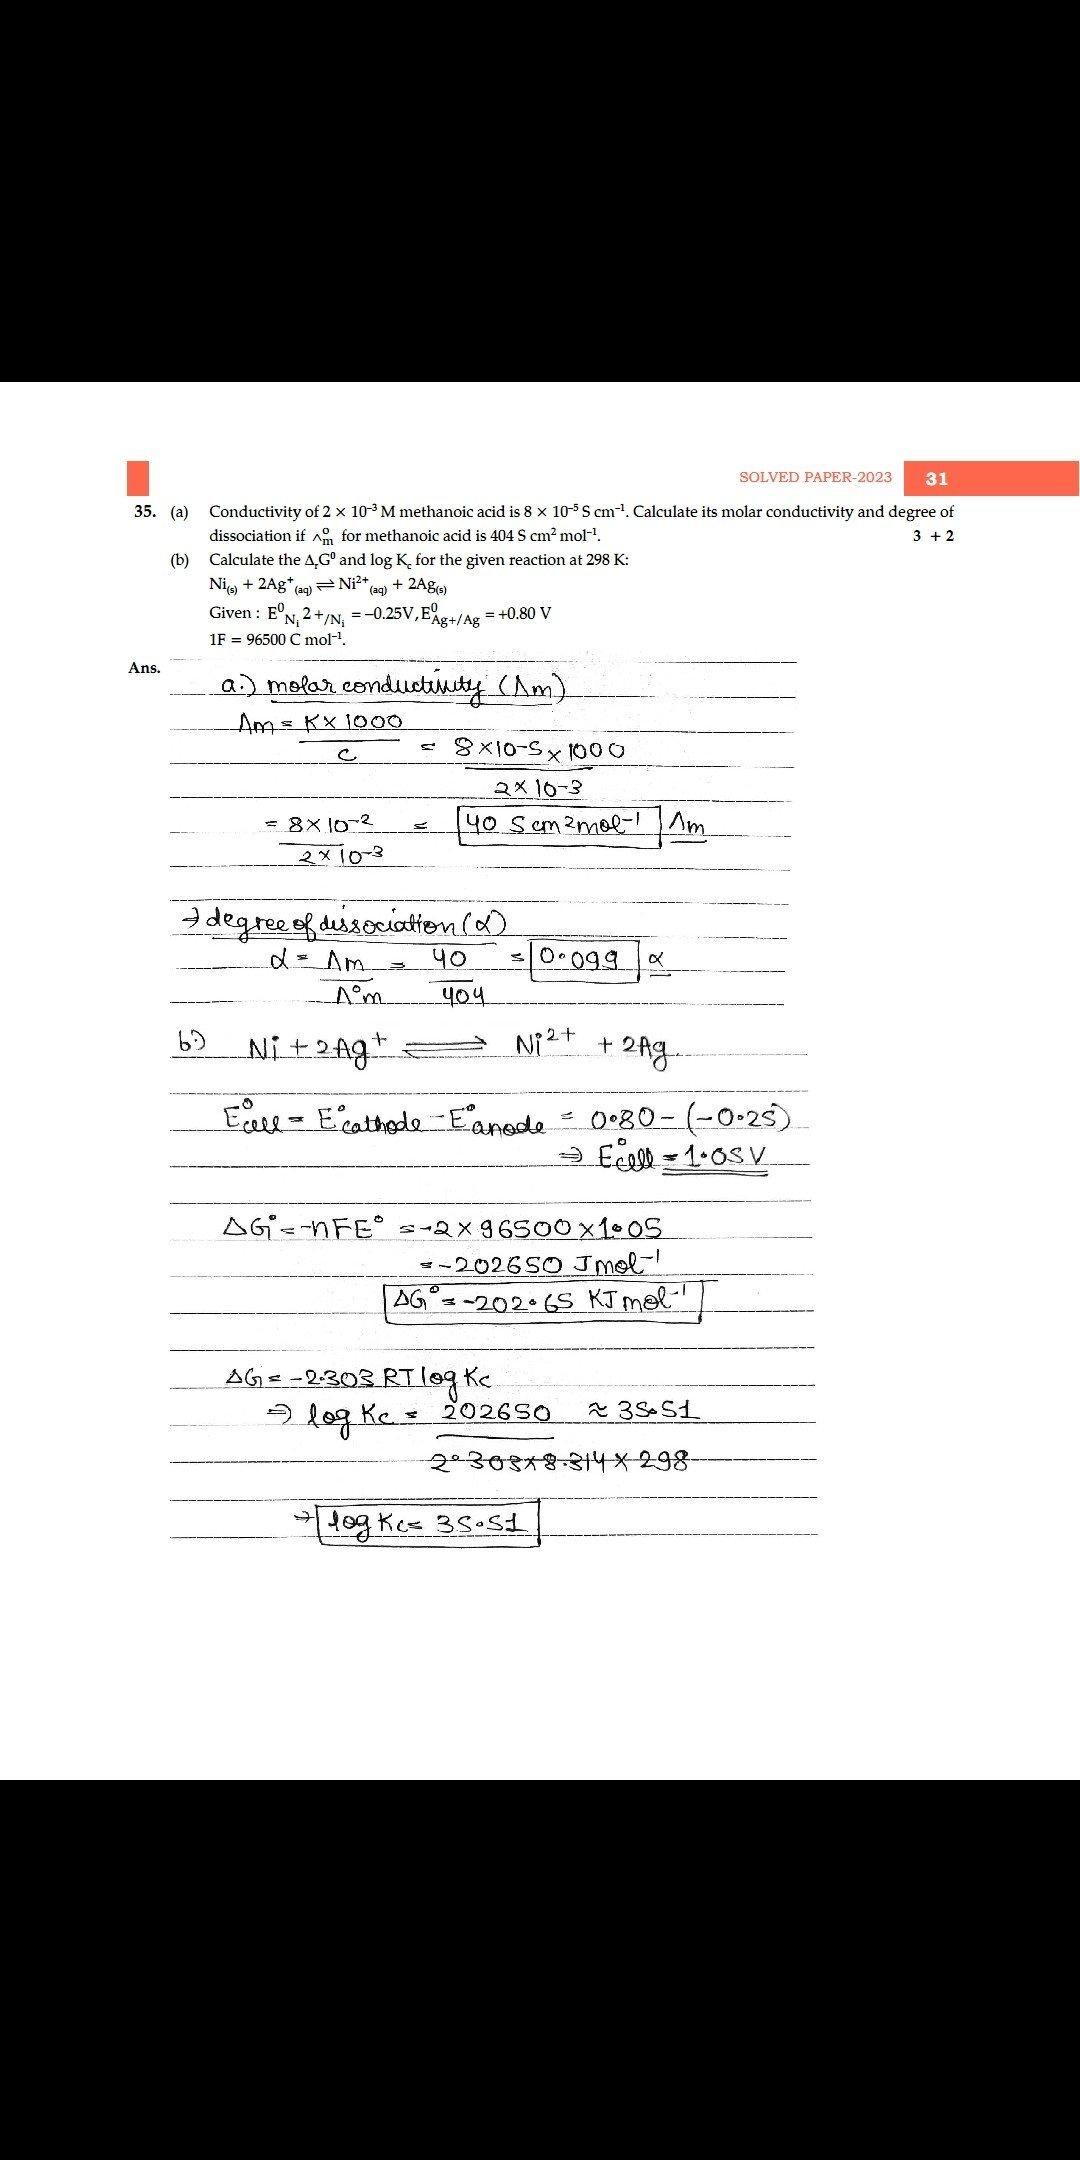 SOLVED PAPER-2023 31
35. (a) Conductivity of 2 × 10⁻³ M methanoic acid is 8 × 10⁻⁵ S cm⁻¹. Calculate its molar conductivity and degree of
dissociation if ∧°m for methanoic acid is 404 S cm² mol⁻¹. 3 + 2
(b) Calculate the ΔᵣG⁰ and log Kc for the given reaction at 298 K:
Ni(s) + 2Ag⁺(aq) ⇌ Ni²⁺(aq) + 2Ag(s)
Given : E⁰Ni 2+/Ni = –0.25V, E⁰Ag+/Ag = +0.80 V
1F = 96500 C mol⁻¹.
Ans.
a.) molar conductivity (Λm)
Λm = K × 1000 / C = 8×10-5 × 1000 / 2×10-3
= 8×10⁻² / 2×10⁻³ = 40 S cm²mol⁻¹ Λm
→ degree of dissociation (α)
α = Λm / Λ°m = 40 / 404 = 0.099 α
b.) Ni + 2Ag⁺ ⇌ Ni²⁺ + 2Ag
E°cell = E°cathode - E°anode = 0.80 - (-0.25)
⇒ E°cell = 1.05 V
ΔG° = -nFE° = -2 × 96500 × 1.05
= -202650 J mol⁻¹
ΔG° = -202.65 KJ mol⁻¹
ΔG = -2.303 RT log Kc
⇒ log Kc = 202650 / 2.303×8.314×298 ≈ 35.51
⇒ log Kc = 35.51